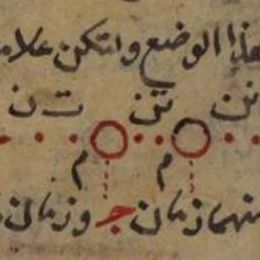 هذا الوضع ولتكن علامة
تن تن ت ن
م م
منهما زمان ج وزمان